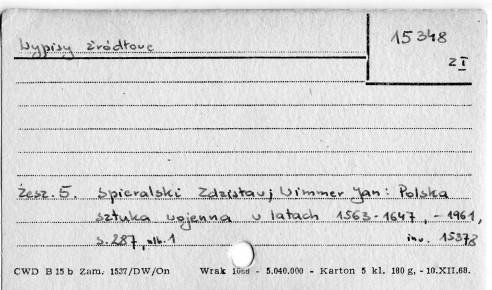 Wypisy źródłowe
15348
z I
Zesz. 5. Spieralski Zdzisław, Wimmer Jan: Polska
sztuka wojenna w latach 1563-1647, - 1961,
s. 287, nlb. 1 inw. 15378
CWD B 15 b Zam. 1537/DW/On Wrak - 5.040.000 - Karton 5 kl. 180 g, - 10.XII.68.